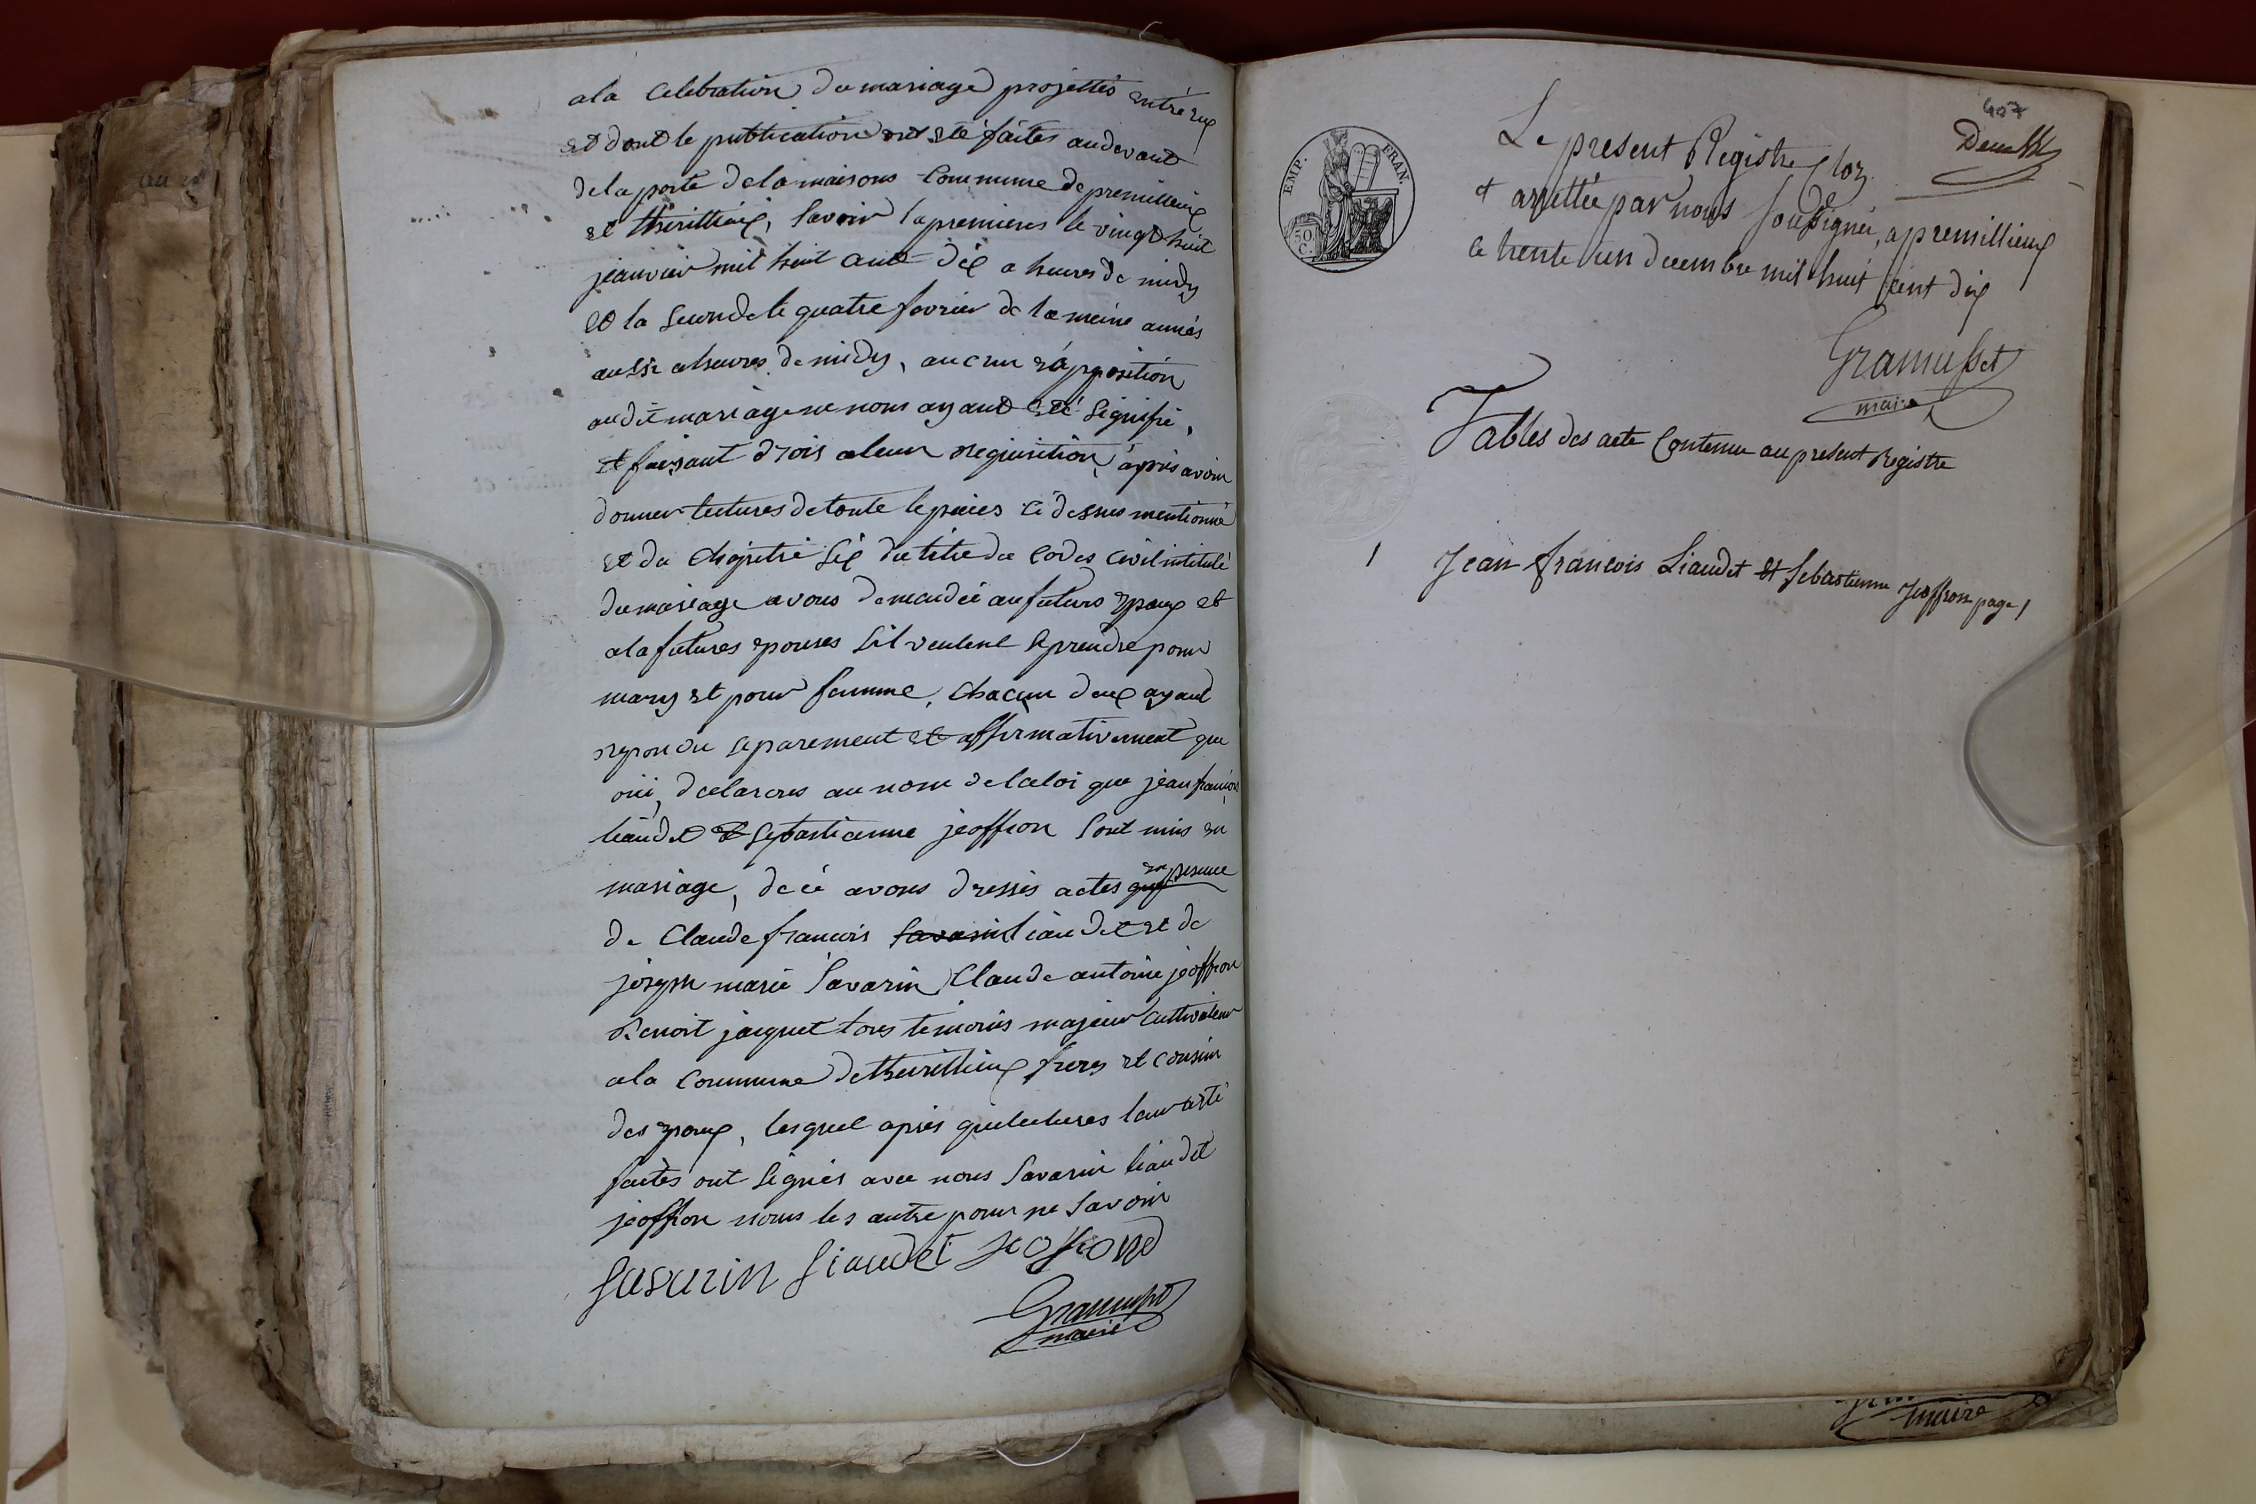 ala Celebration du mariage projettés entre eux
et dont le publication ont eté faites audevant
dela porte dela maisons Commune de premillieux
et thezillieux, Savoir lapremieres le vingt huit
jeanvier mil huit cent dix a heures de midy
et la Seconde le quatre fevrier de la meme année
aussi a heures de midy, aucun opposition
audit mariage ne nous ayant eté Signifié,
et faisant drois aleur requisition, après avoir
donner lectures de toute le pieces ci dessus mentionné
et du Chapitre Six du titre du Codes Civil intitulé
du mariage avons demandée au futurs epoux et
ala futures epouses Sil veulent Se prendre pour
mary et pour femme, Chacun deux ayant
repondu Separement et affirmativement que
oüi, declarons au nom de la loi que jean francois
liaudet et Sebastienne jeoffron Sont unis en
mariage, de ce avons dressés actes en presence
de Claude francois Savarin liaudet et de
joseph marie Savarin Claude antoine jeoffron
Benoit jacquet tous temoins majeur Cultivateur
ala Commune de thezillieux freres et cousin
des epoux, lesquel après que lectures leur a eté
faites ont Signés avec nous Savarin liaudet
jeoffron nous les autre pour ne Savoir
Savarin Liaudet Jeofrond
Gramusset
maire
407
EMP. FRAN.
50 C.
Le present Registre Cloz
et arrettée par nous Soussigné, a premillieux
le trente un decembre mil huit cent dix
Gramusset
maire
Tables des acte Contenu au present Registre
1 Jean francois Liaudet et Sebastienne Jeoffron page 1
maire